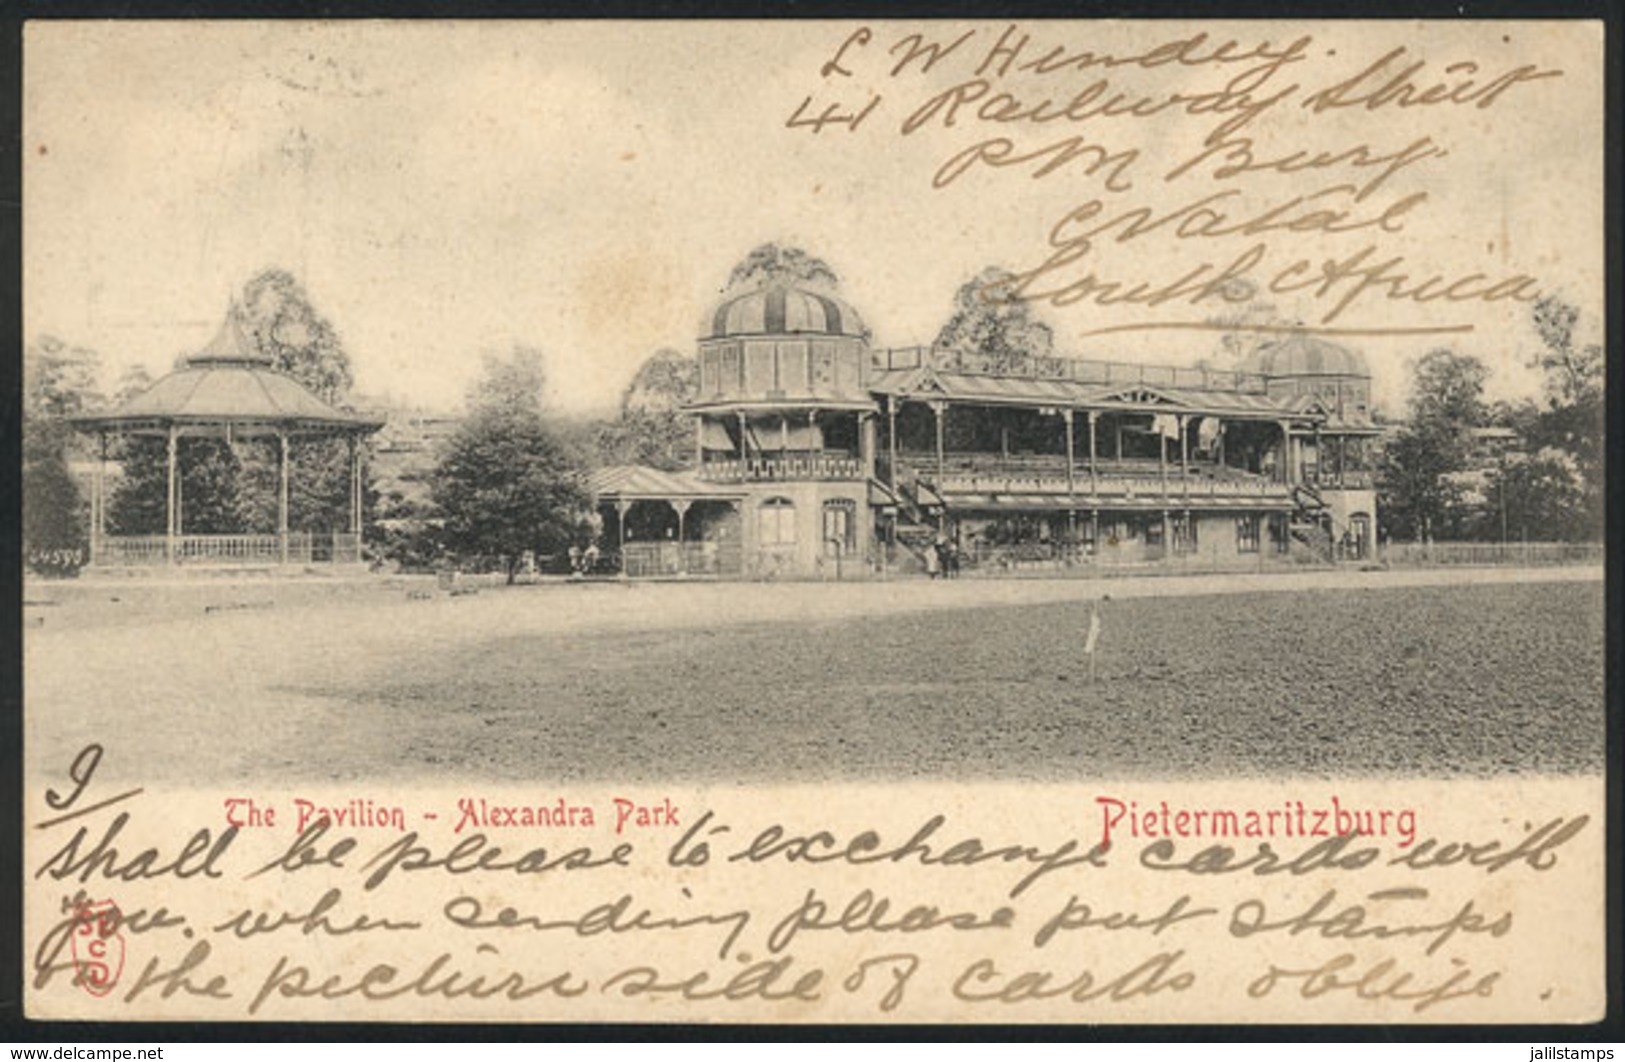 L W Hendey.
41 Railway Street
P M Burg.
Natal
South Africa
44598
The Pavilion ~ Alexandra Park
Pietermaritzburg
I
shall be please to exchange cards with
you. when sending please put stamps
on the picture side of cards oblige.
www.delcampe.net
jalilstamps